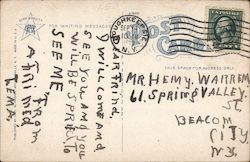 FOR WRITING MESSAGES
POUGHKEEPSIE
N.Y.
POST CARD
THIS SPACE FOR ADDRESS ONLY
DEAR FRIND.
I WILL COME AND
SEE YOU AND YOU
WILL BE SPRES TO
SEE ME
FROM
A FRIMED
LEMA.
MR HEMY. WARREM
61. SPRING VALLEY.
ST.
BEACOM
CITY
N.Y.